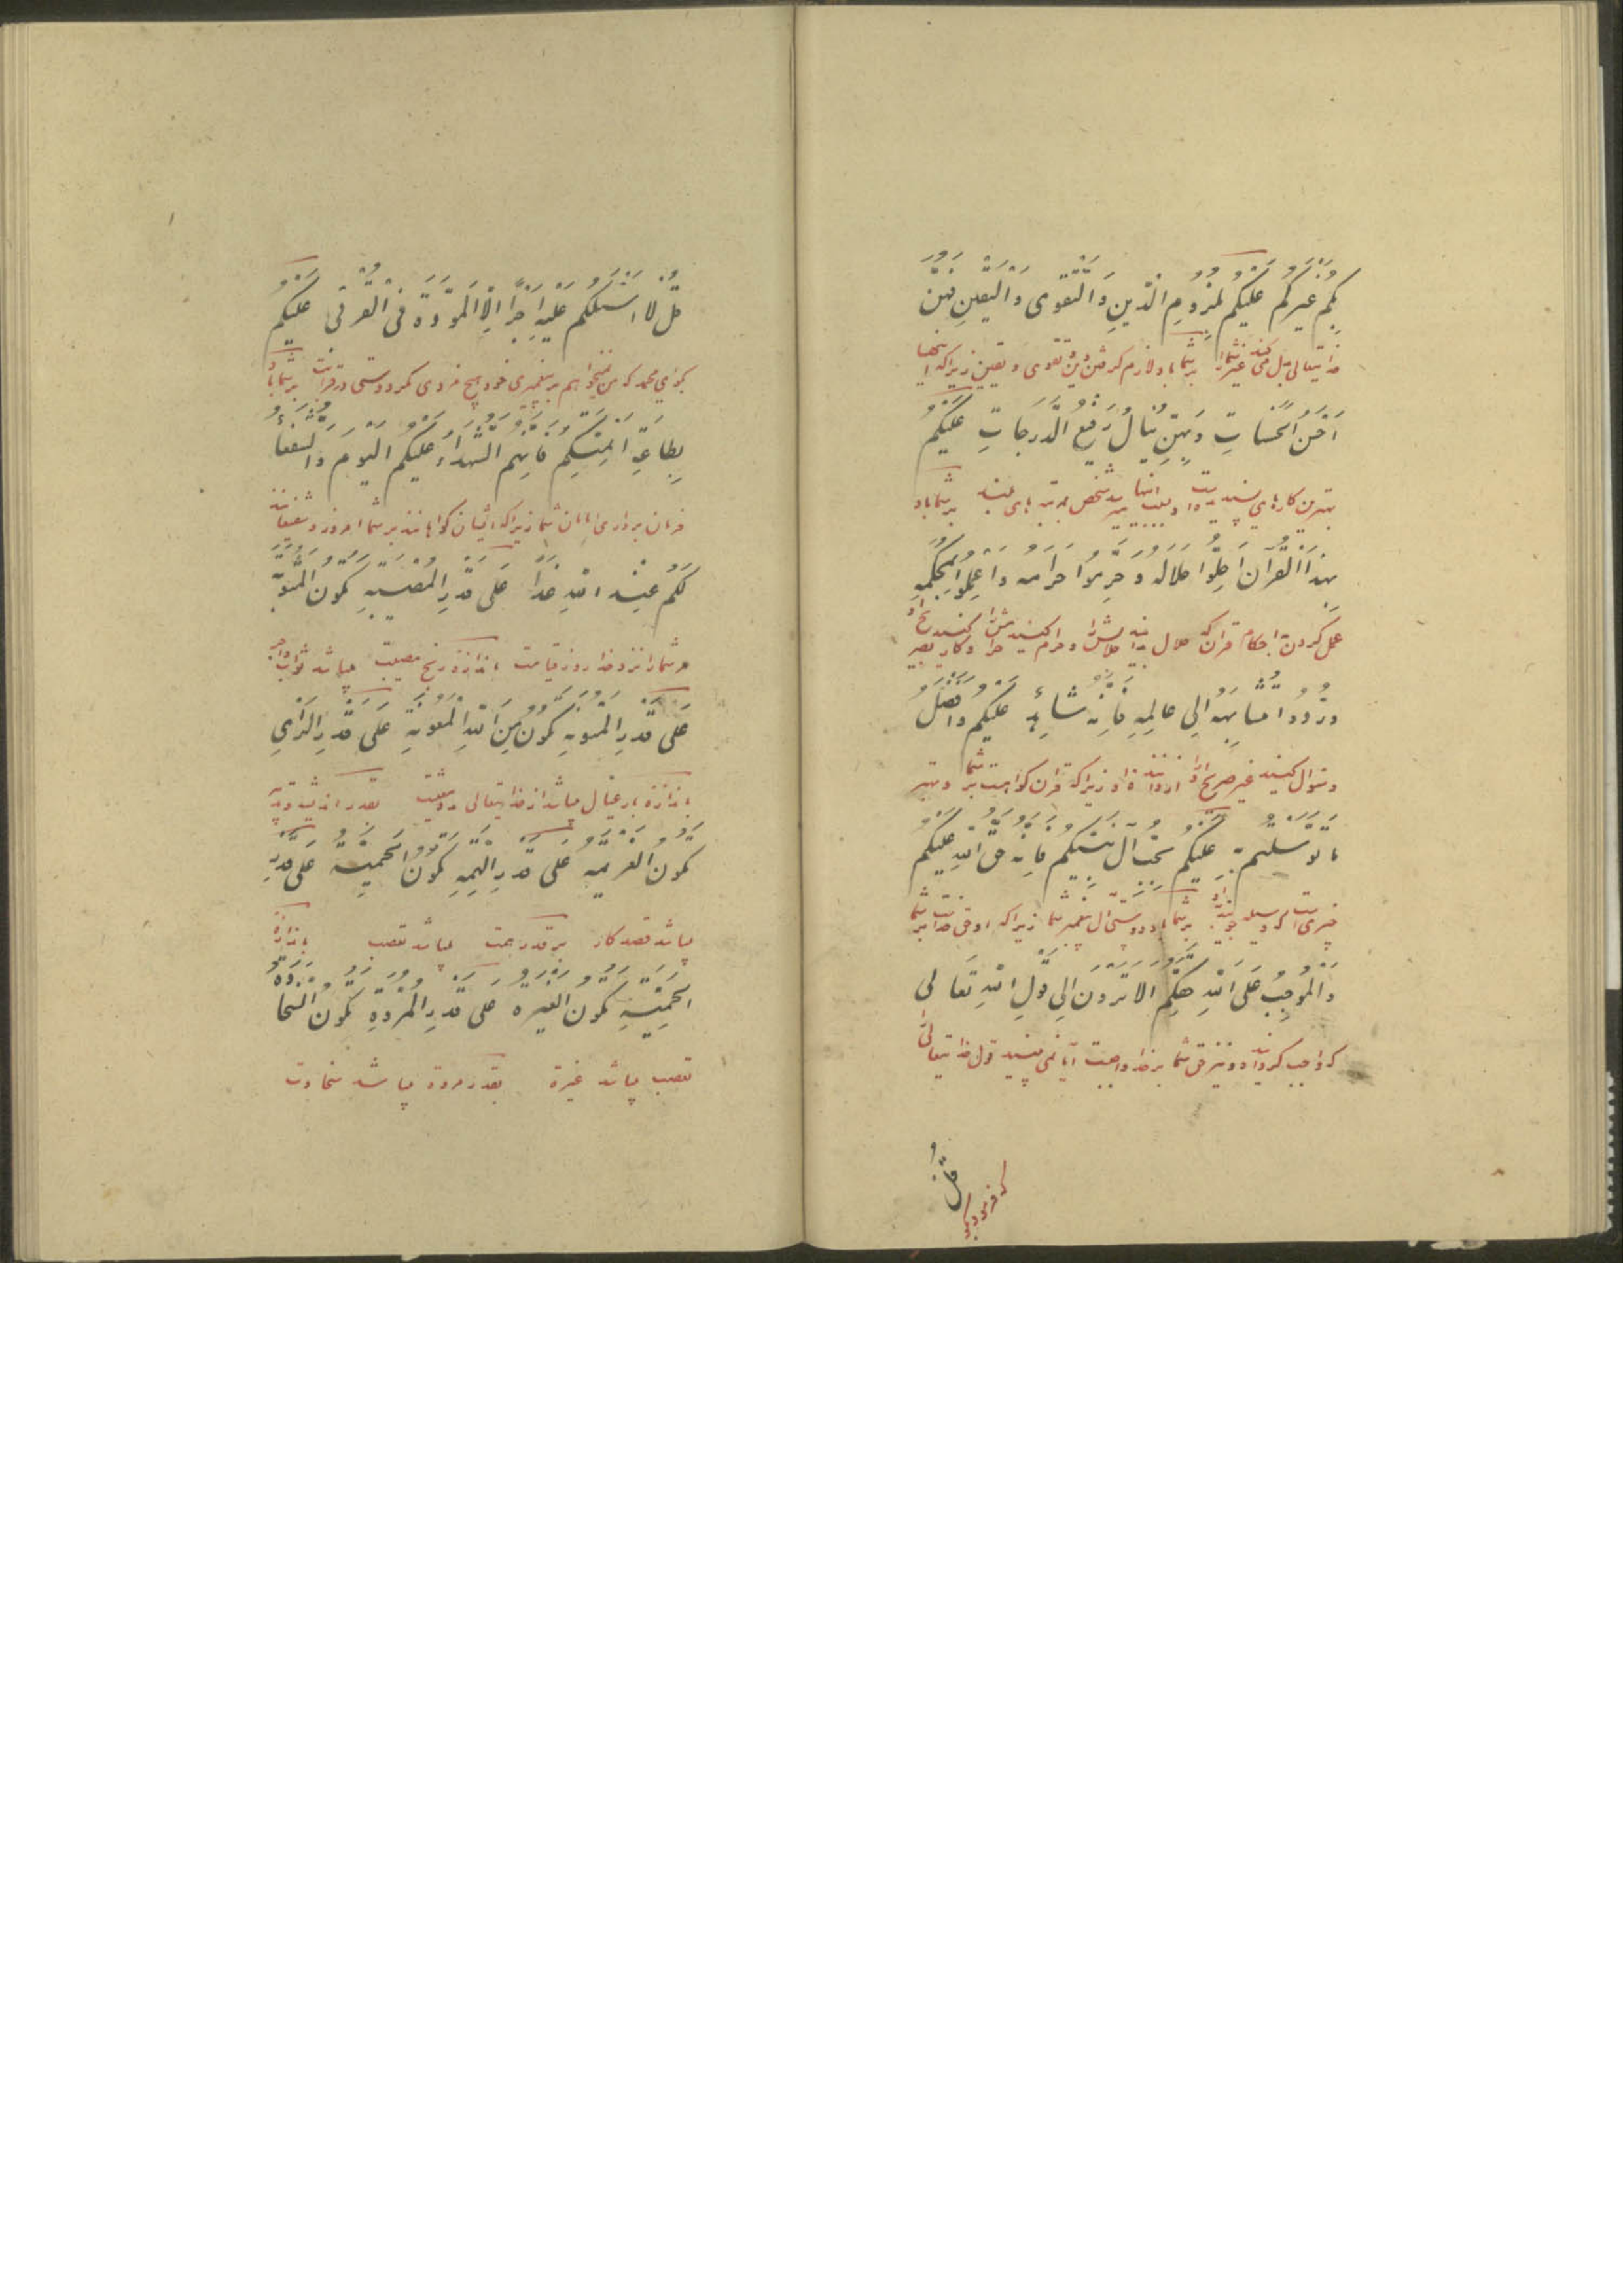 بكم غيركم عليكم بلزوم الدين والتقوى واليقين فهن
خدايتعالى بدل مى كند غير شما را بر شما باد لازم گرفتن دين و تقوى و يقين زيرا كه اينها
احسن الحسنات وبهن ينال رفيع الدرجات عليكم
بهترين كارهاى پسنديده است و بسبب اينها ميرسد شخص بمرتبه هاى بلند بر شما باد
بهذا القرآن احلوا حلاله وحرموا حرامه واعملوا بمحكمه
عمل كردن باحكام قرآن كه حلال بدانيد حلالش را و حرام كنيد حرامش را و كار كنيد بصريح او
وردوا متشابهه الى عالمه فانه شاهد عليكم وافضل
و سوال كنيد غير صريح او را از داننده او زيرا كه قرآن گواهست بر شما و بهتر
ما توسلتم به عليكم بحب آل نبيكم فانه حق الله عليكم
چيزى است كه وسيله بر شما باد دوستى آل پيغمبر شما زيرا كه او حق خداست بر شما
والموجب على الله حقكم الا ترون الى قول الله تعالى
كه واجب گردانيده و نيز حق شما بر خدا واجبست آيا نمى بينيد قول خدايتعالى را
قل
كه فرمود بگو
قل لا اسئلكم عليه اجرا الا المودة فى القربى عليكم
بگو اى محمد كه من نميخواهم بر پيغمبرى خود هيچ مزدى مگر دوستى در قرابت بر شما باد
بطاعة ائمتكم فانهم الشهداء عليكم اليوم والشفعاء
فرمان بردارى امامان شما زيرا كه ايشان گواهانند بر شما امروز و شفيعانند
لكم عند الله غدا على قدر المصيبة تكون المثوبة
مر شما را نزد خدا روز قيامت باندازه رنج مصيبت ميباشد ثواب و اجر
على قدر المئونة تكون من الله المعونة على قدر الراى
باندازه بار عيال ميباشد از خدايتعالى بقدر انديشه و تدبير
تكون العزيمة على قدر الهمة تكون الحمية على قدر
ميباشد قصد كار بر قدر همت ميباشد تعصب باندازه
الحمية تكون الغيرة على قدر المروة تكون السخاوة
تعصب ميباشد غيرة بقدر مروة ميباشد سخاوت